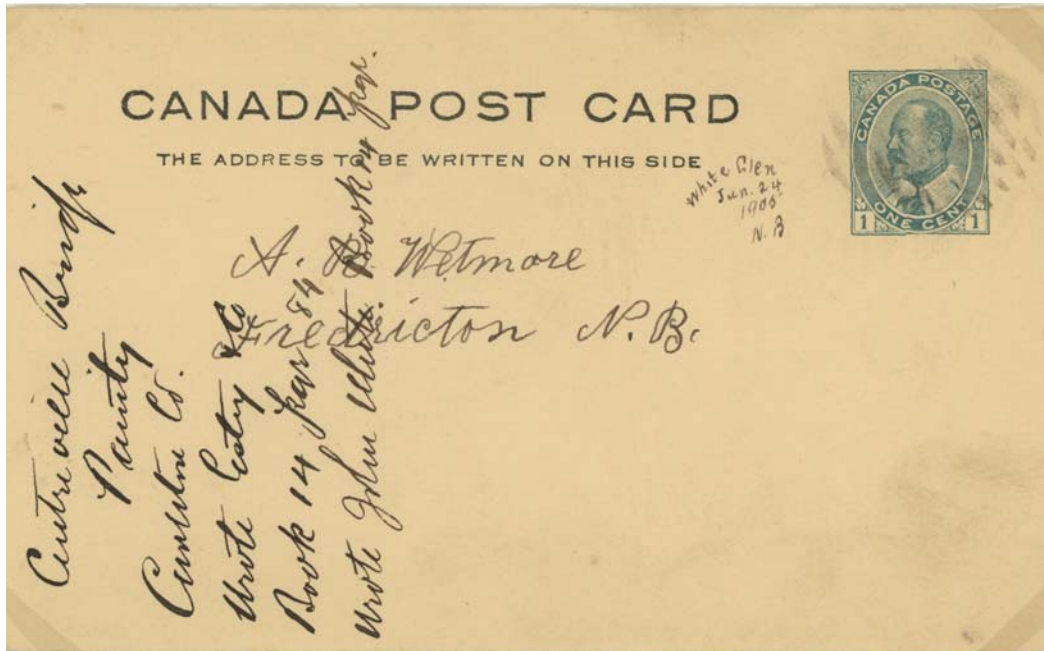 CANADA POST CARD
THE ADDRESS TO BE WRITTEN ON THIS SIDE
CANADA POSTAGE
ONE CENT
1 1
White Glen
Jun. 24
1905
N. B
A. B. Wetmore
Fredricton N. B.
Centreville Bridge
Painty
Carleton Co.
Wrote Estey & Co
Book 14 page 84
Wrote John White. Book 14 page.